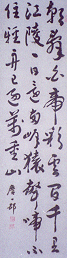 朝辭白帝彩雲間千里
江陵一日還兩岸猿聲啼不
住輕舟已過萬重山